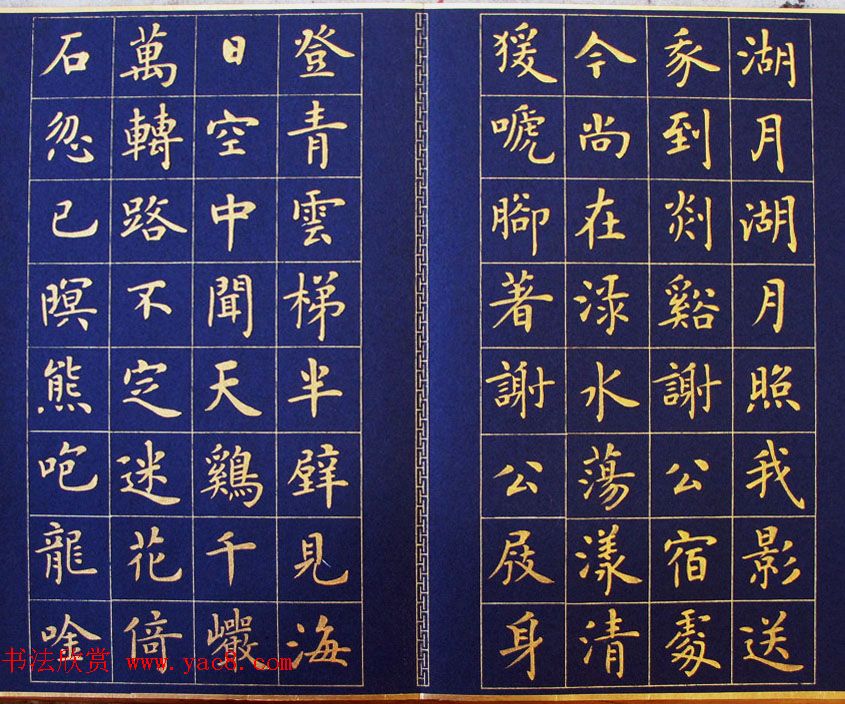 湖月湖月照我影送
到剡谿謝公宿處
今尚在渌水蕩漾清
猨嗁腳著謝公屐身
登青雲梯半壁見海
日空中聞天鷄千巖
萬轉路不定迷花倚
石忽已暝熊咆龍唫
书法欣赏 www.yac8.com